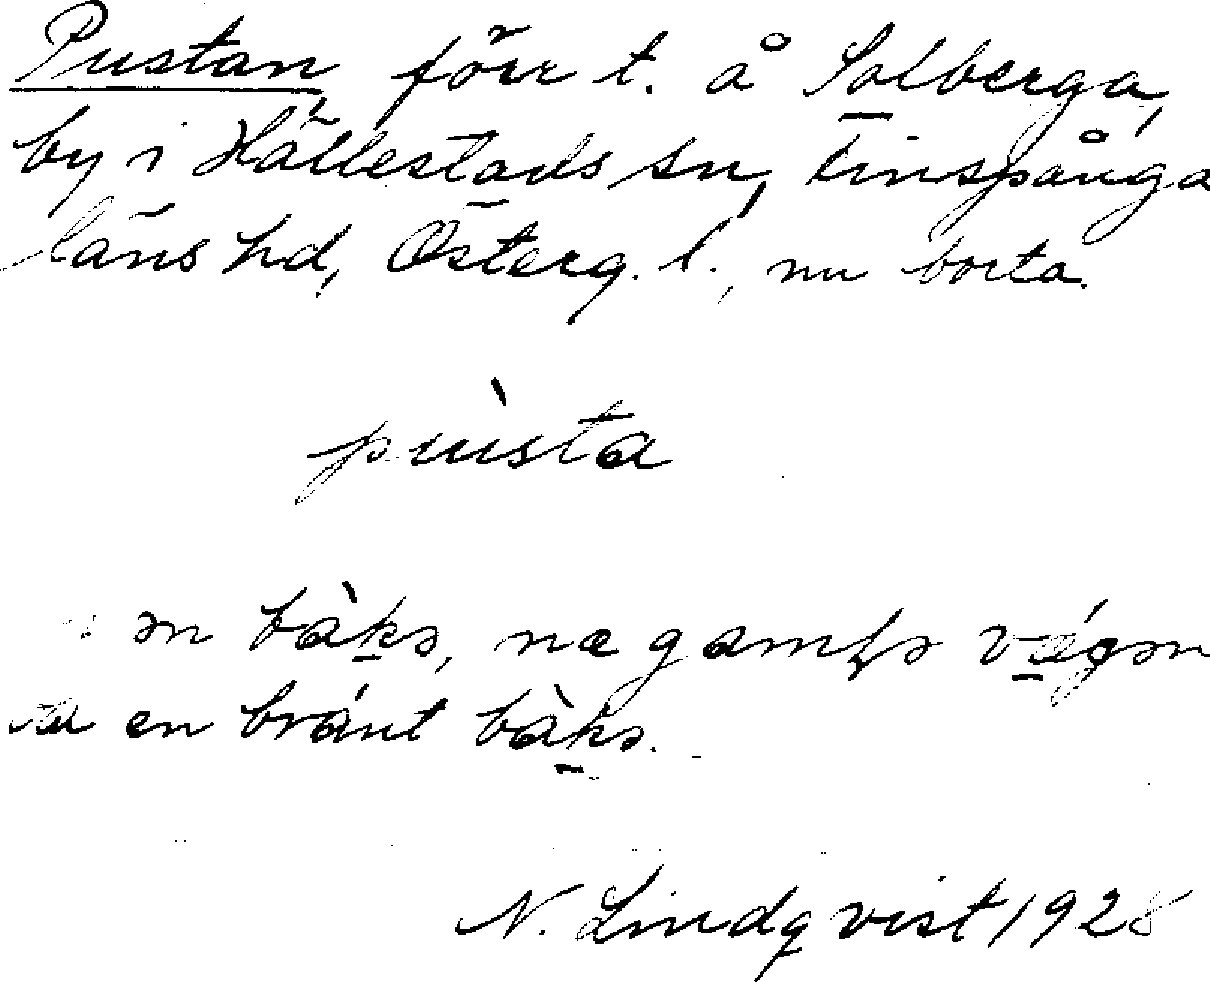 Pustan, förr t. å Solberga,
by i Hällestads sn, Finspånga
läns hd, Österg. l., nu borta.
pùsta
ən bàkə, næ gamḷə vǽgən
en bránt bàkə.
N. Lindqvist 1928